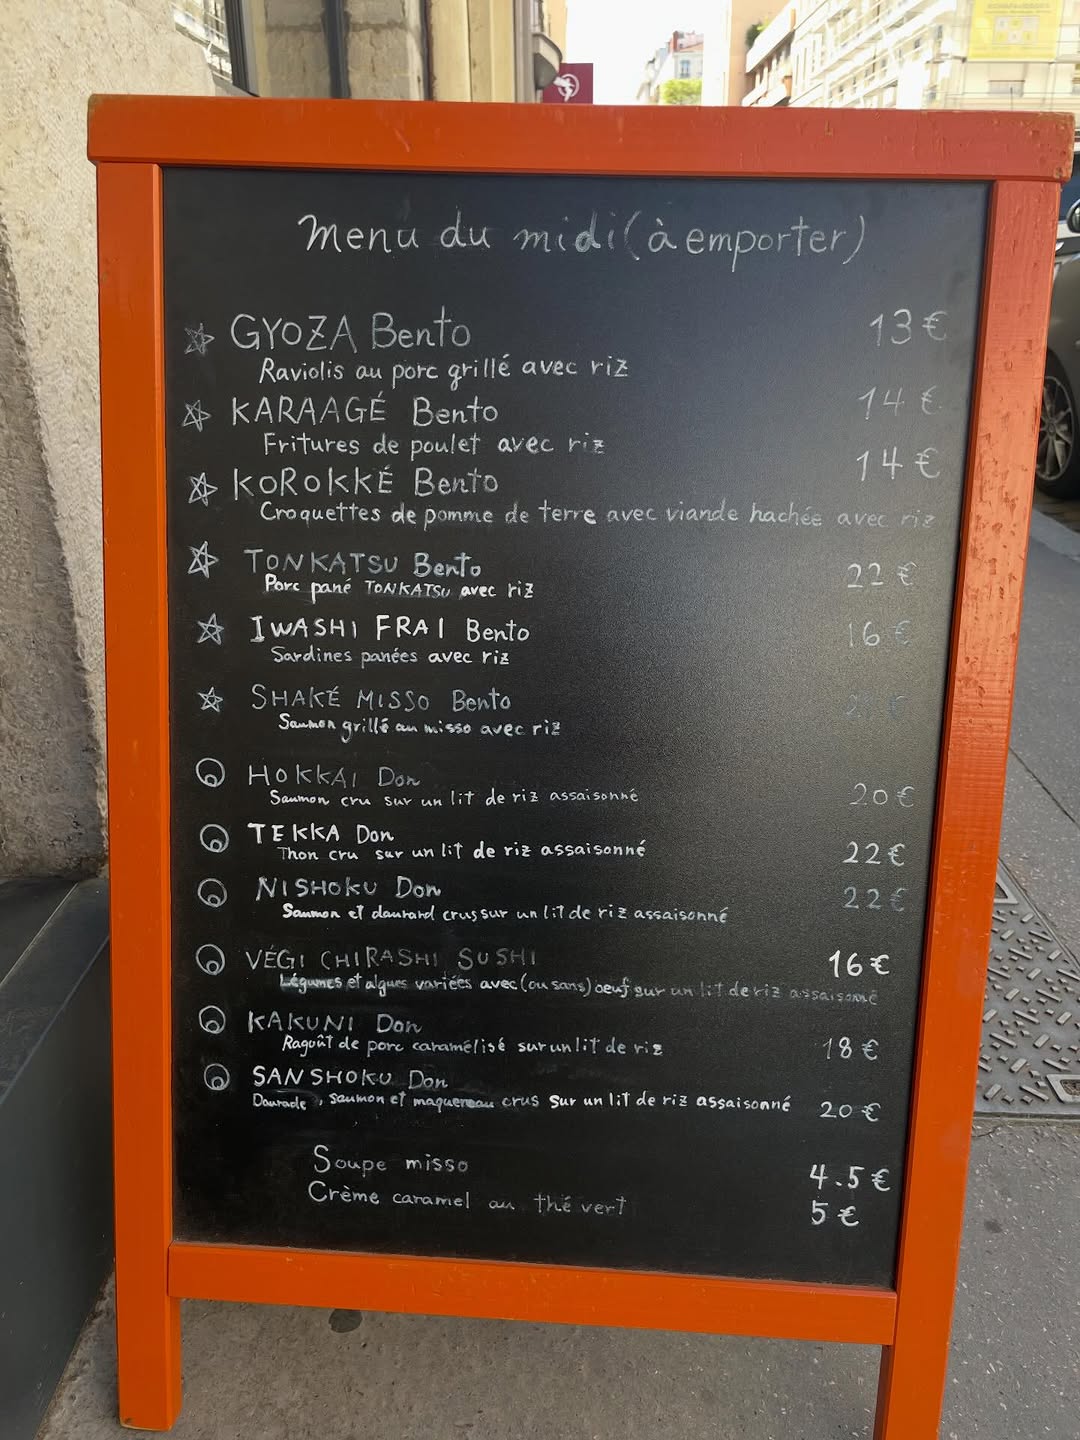 Menu du midi (à emporter)
GYOZA Bento 13 €
Raviolis au porc grillé avec riz
KARAAGÉ Bento 14 €
Fritures de poulet avec riz
KOROKKÉ Bento 14 €
Croquettes de pomme de terre avec viande hachée avec riz
TONKATSU Bento 22 €
Porc pané TONKATSU avec riz
IWASHI FRAI Bento 16 €
Sardines panées avec riz
SHAKÉ MISSO Bento
Saumon grillé au misso avec riz
HOKKAI Don 20 €
Saumon cru sur un lit de riz assaisonné
TEKKA Don 22 €
Thon cru sur un lit de riz assaisonné
NISHOKU Don 22 €
Saumon et daurard crus sur un lit de riz assaisonné
VÉGI CHIRASHI SUSHI 16 €
Légumes et algues variées avec (ou sans) oeuf sur un lit de riz assaisonné
KAKUNI Don 18 €
Ragoût de porc caramélisé sur un lit de riz
SANSHOKU Don
Daurade, saumon et maquereau crus sur un lit de riz assaisonné 20 €
Soupe misso 4.5 €
Crème caramel au thé vert 5 €